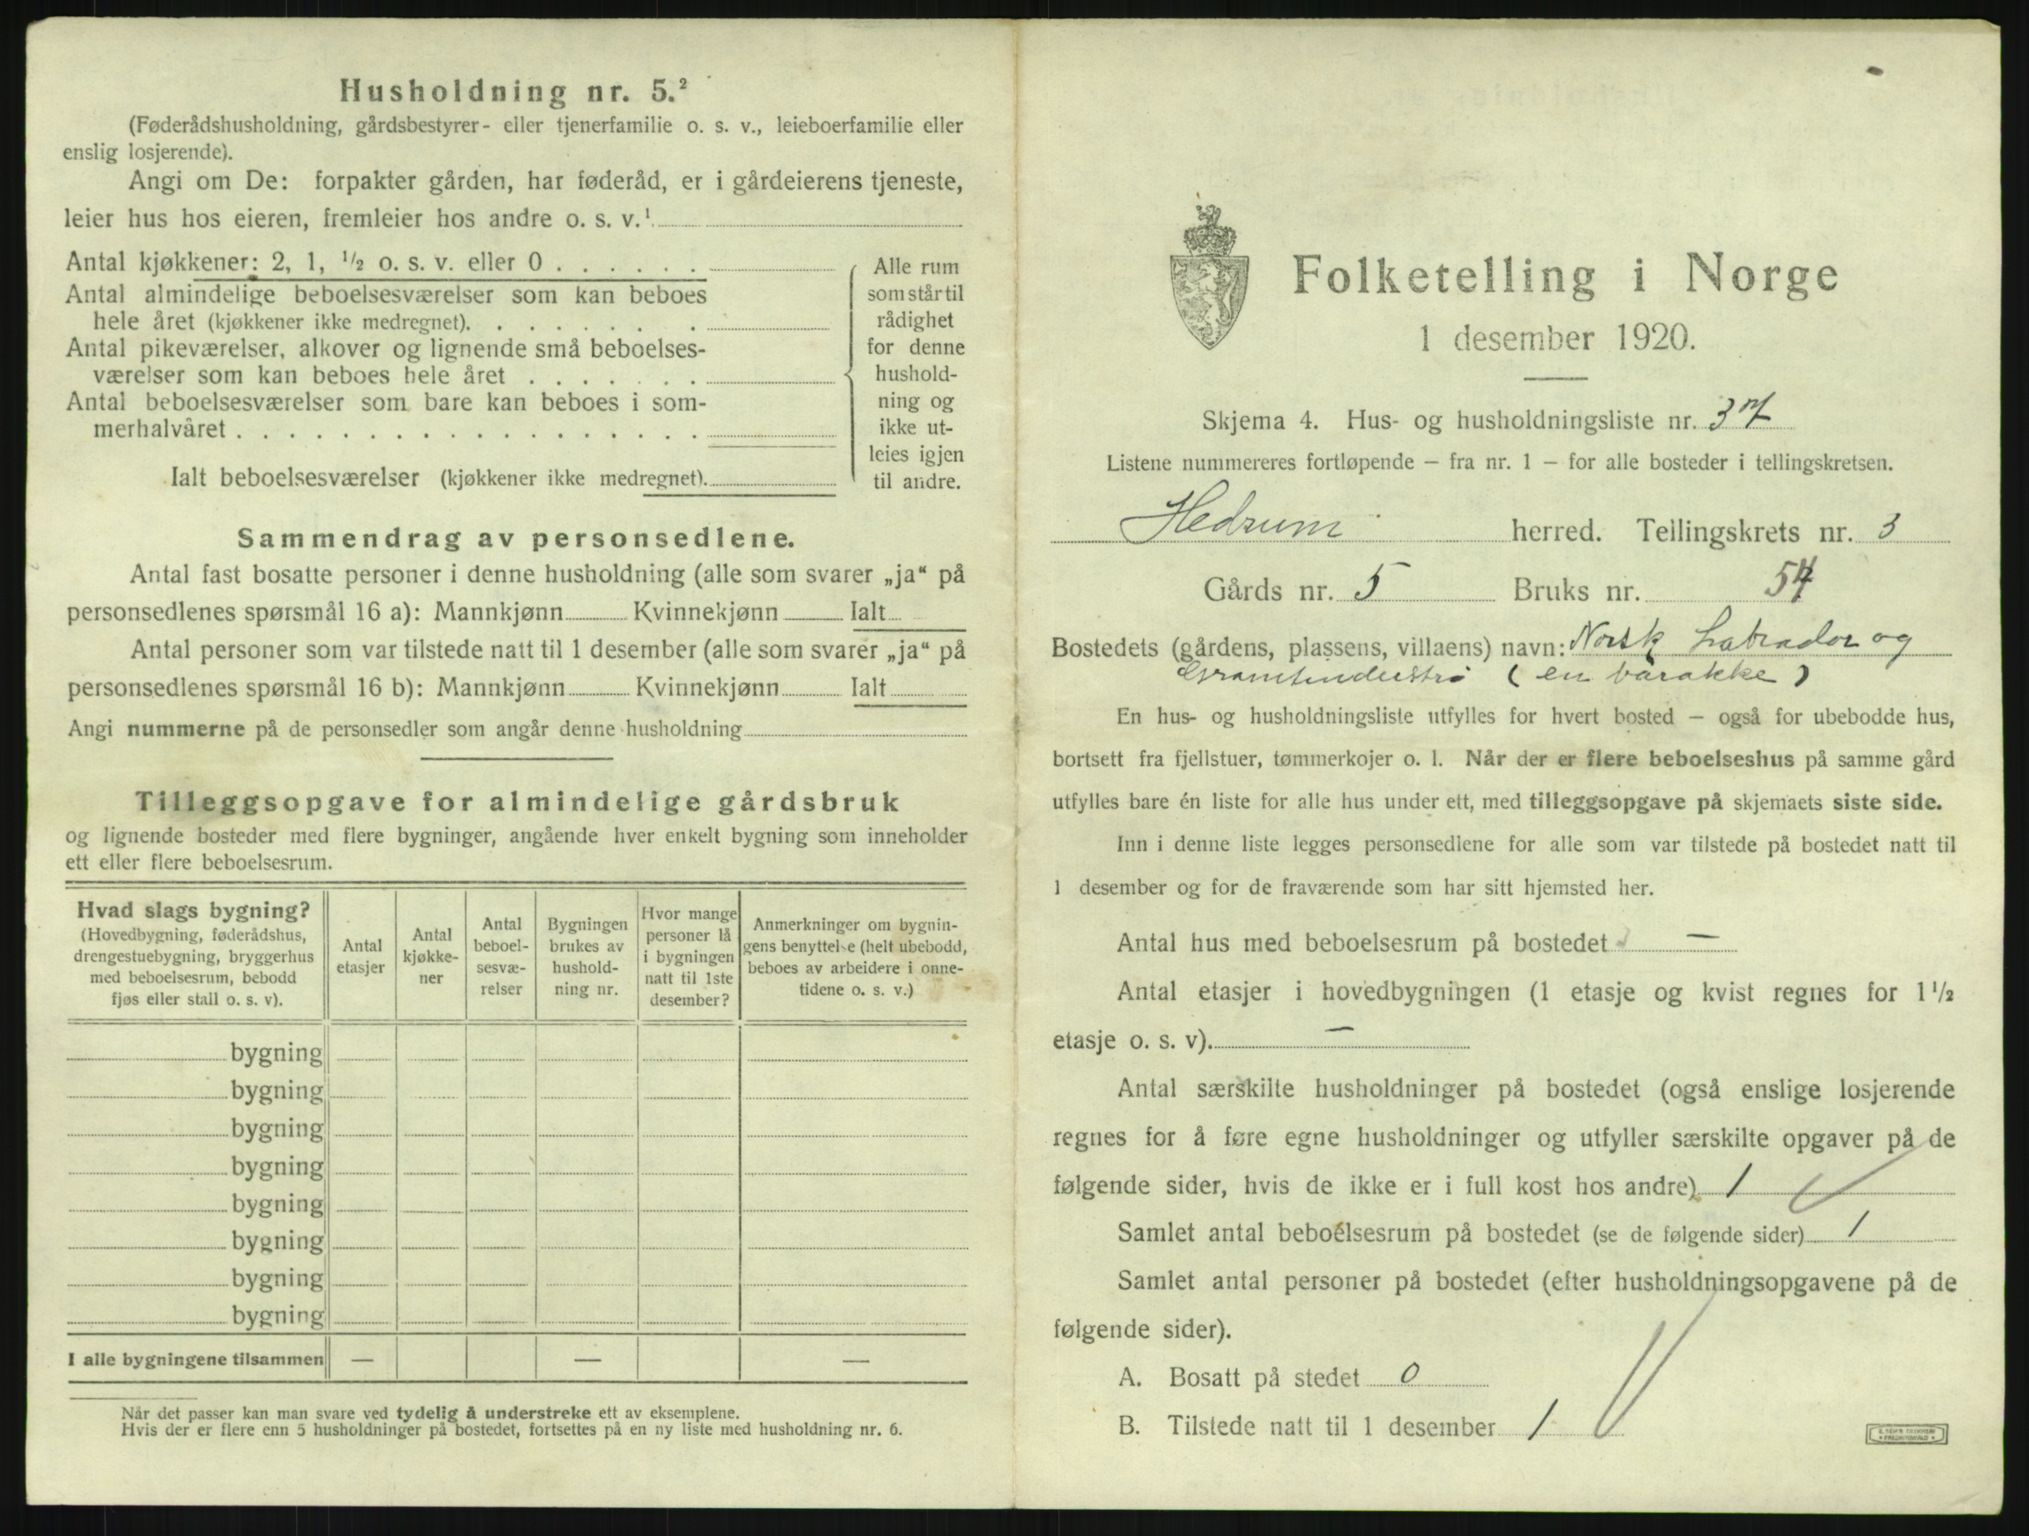 Husholdning nr. 5.²
(Føderådshusholdning, gårdsbestyrer- eller tjenerfamilie o. s. v., leieboerfamilie eller
enslig losjerende).
Angi om De: forpakter gården, har føderåd, er i gårdeierens tjeneste,
leier hus hos eieren, fremleier hos andre o. s. v.¹
Antal kjøkkener: 2, 1, ½ o. s. v. eller 0 . . . . . .
Antal almindelige beboelsesværelser som kan beboes
hele året (kjøkkener ikke medregnet). . . . . . . .
Antal pikeværelser, alkover og lignende små beboelses-
værelser som kan beboes hele året . . . . . . .
Antal beboelsesværelser som bare kan beboes i som-
merhalvåret . . . . . . . . . . . . . . . . . .
Ialt beboelsesværelser (kjøkkener ikke medregnet).
Alle rum
som står til
rådighet
for denne
hushold-
ning og
ikke ut-
leies igjen
til andre.
Sammendrag av personsedlene.
Antal fast bosatte personer i denne husholdning (alle som svarer „ja“ på
personsedlenes spørsmål 16 a): Mannkjønn Kvinnekjønn Ialt
Antal personer som var tilstede natt til 1 desember (alle som svarer „ja“ på
personsedlenes spørsmål 16 b): Mannkjønn Kvinnekjønn Ialt
Angi nummerne på de personsedler som angår denne husholdning
Tilleggsopgave for almindelige gårdsbruk
og lignende bosteder med flere bygninger, angående hver enkelt bygning som inneholder
ett eller flere beboelsesrum.
Hvad slags bygning?
(Hovedbygning, føderådshus,
drengestuebygning, bryggerhus
med beboelsesrum, bebodd
fjøs eller stall o. s. v).
Antal
etasjer
Antal
kjøkke-
ner
Antal
beboel-
sesvæ-
relser
Bygningen
brukes av
hushold-
ning nr.
Hvor mange
personer lå
i bygningen
natt til 1ste
desember?
Anmerkninger om bygnin-
gens benyttelse (helt ubebodd,
beboes av arbeidere i onne-
tidene o. s. v.)
bygning
bygning
bygning
bygning
bygning
bygning
bygning
bygning
I alle bygningene tilsammen — — —
Når det passer kan man svare ved tydelig å understreke ett av eksemplene.
Hvis der er flere enn 5 husholdninger på bostedet, fortsettes på en ny liste med husholdning nr. 6.
Folketelling i Norge
1 desember 1920.
Skjema 4. Hus- og husholdningsliste nr. 37
Listene nummereres fortløpende – fra nr. 1 – for alle bosteder i tellingskretsen.
Hedrum herred. Tellingskrets nr. 3
Gårds nr. 5 Bruks nr. 54
Bostedets (gårdens, plassens, villaens) navn: Norsk Labrador og
Granitindustri (en barakke)
En hus- og husholdningsliste utfylles for hvert bosted – også for ubebodde hus,
bortsett fra fjellstuer, tømmerkojer o. l. Når der er flere beboelseshus på samme gård
utfylles bare én liste for alle hus under ett, med tilleggsopgave på skjemaets siste side.
Inn i denne liste legges personsedlene for alle som var tilstede på bostedet natt til
1 desember og for de fraværende som har sitt hjemsted her.
Antal hus med beboelsesrum på bostedet —
Antal etasjer i hovedbygningen (1 etasje og kvist regnes for 1½
etasje o. s. v). —
Antal særskilte husholdninger på bostedet (også enslige losjerende
regnes for å føre egne husholdninger og utfyller særskilte opgaver på de
følgende sider, hvis de ikke er i full kost hos andre) 1
Samlet antal beboelsesrum på bostedet (se de følgende sider) 1
Samlet antal personer på bostedet (efter husholdningsopgavene på de
følgende sider).
A. Bosatt på stedet 0
B. Tilstede natt til 1 desember 1